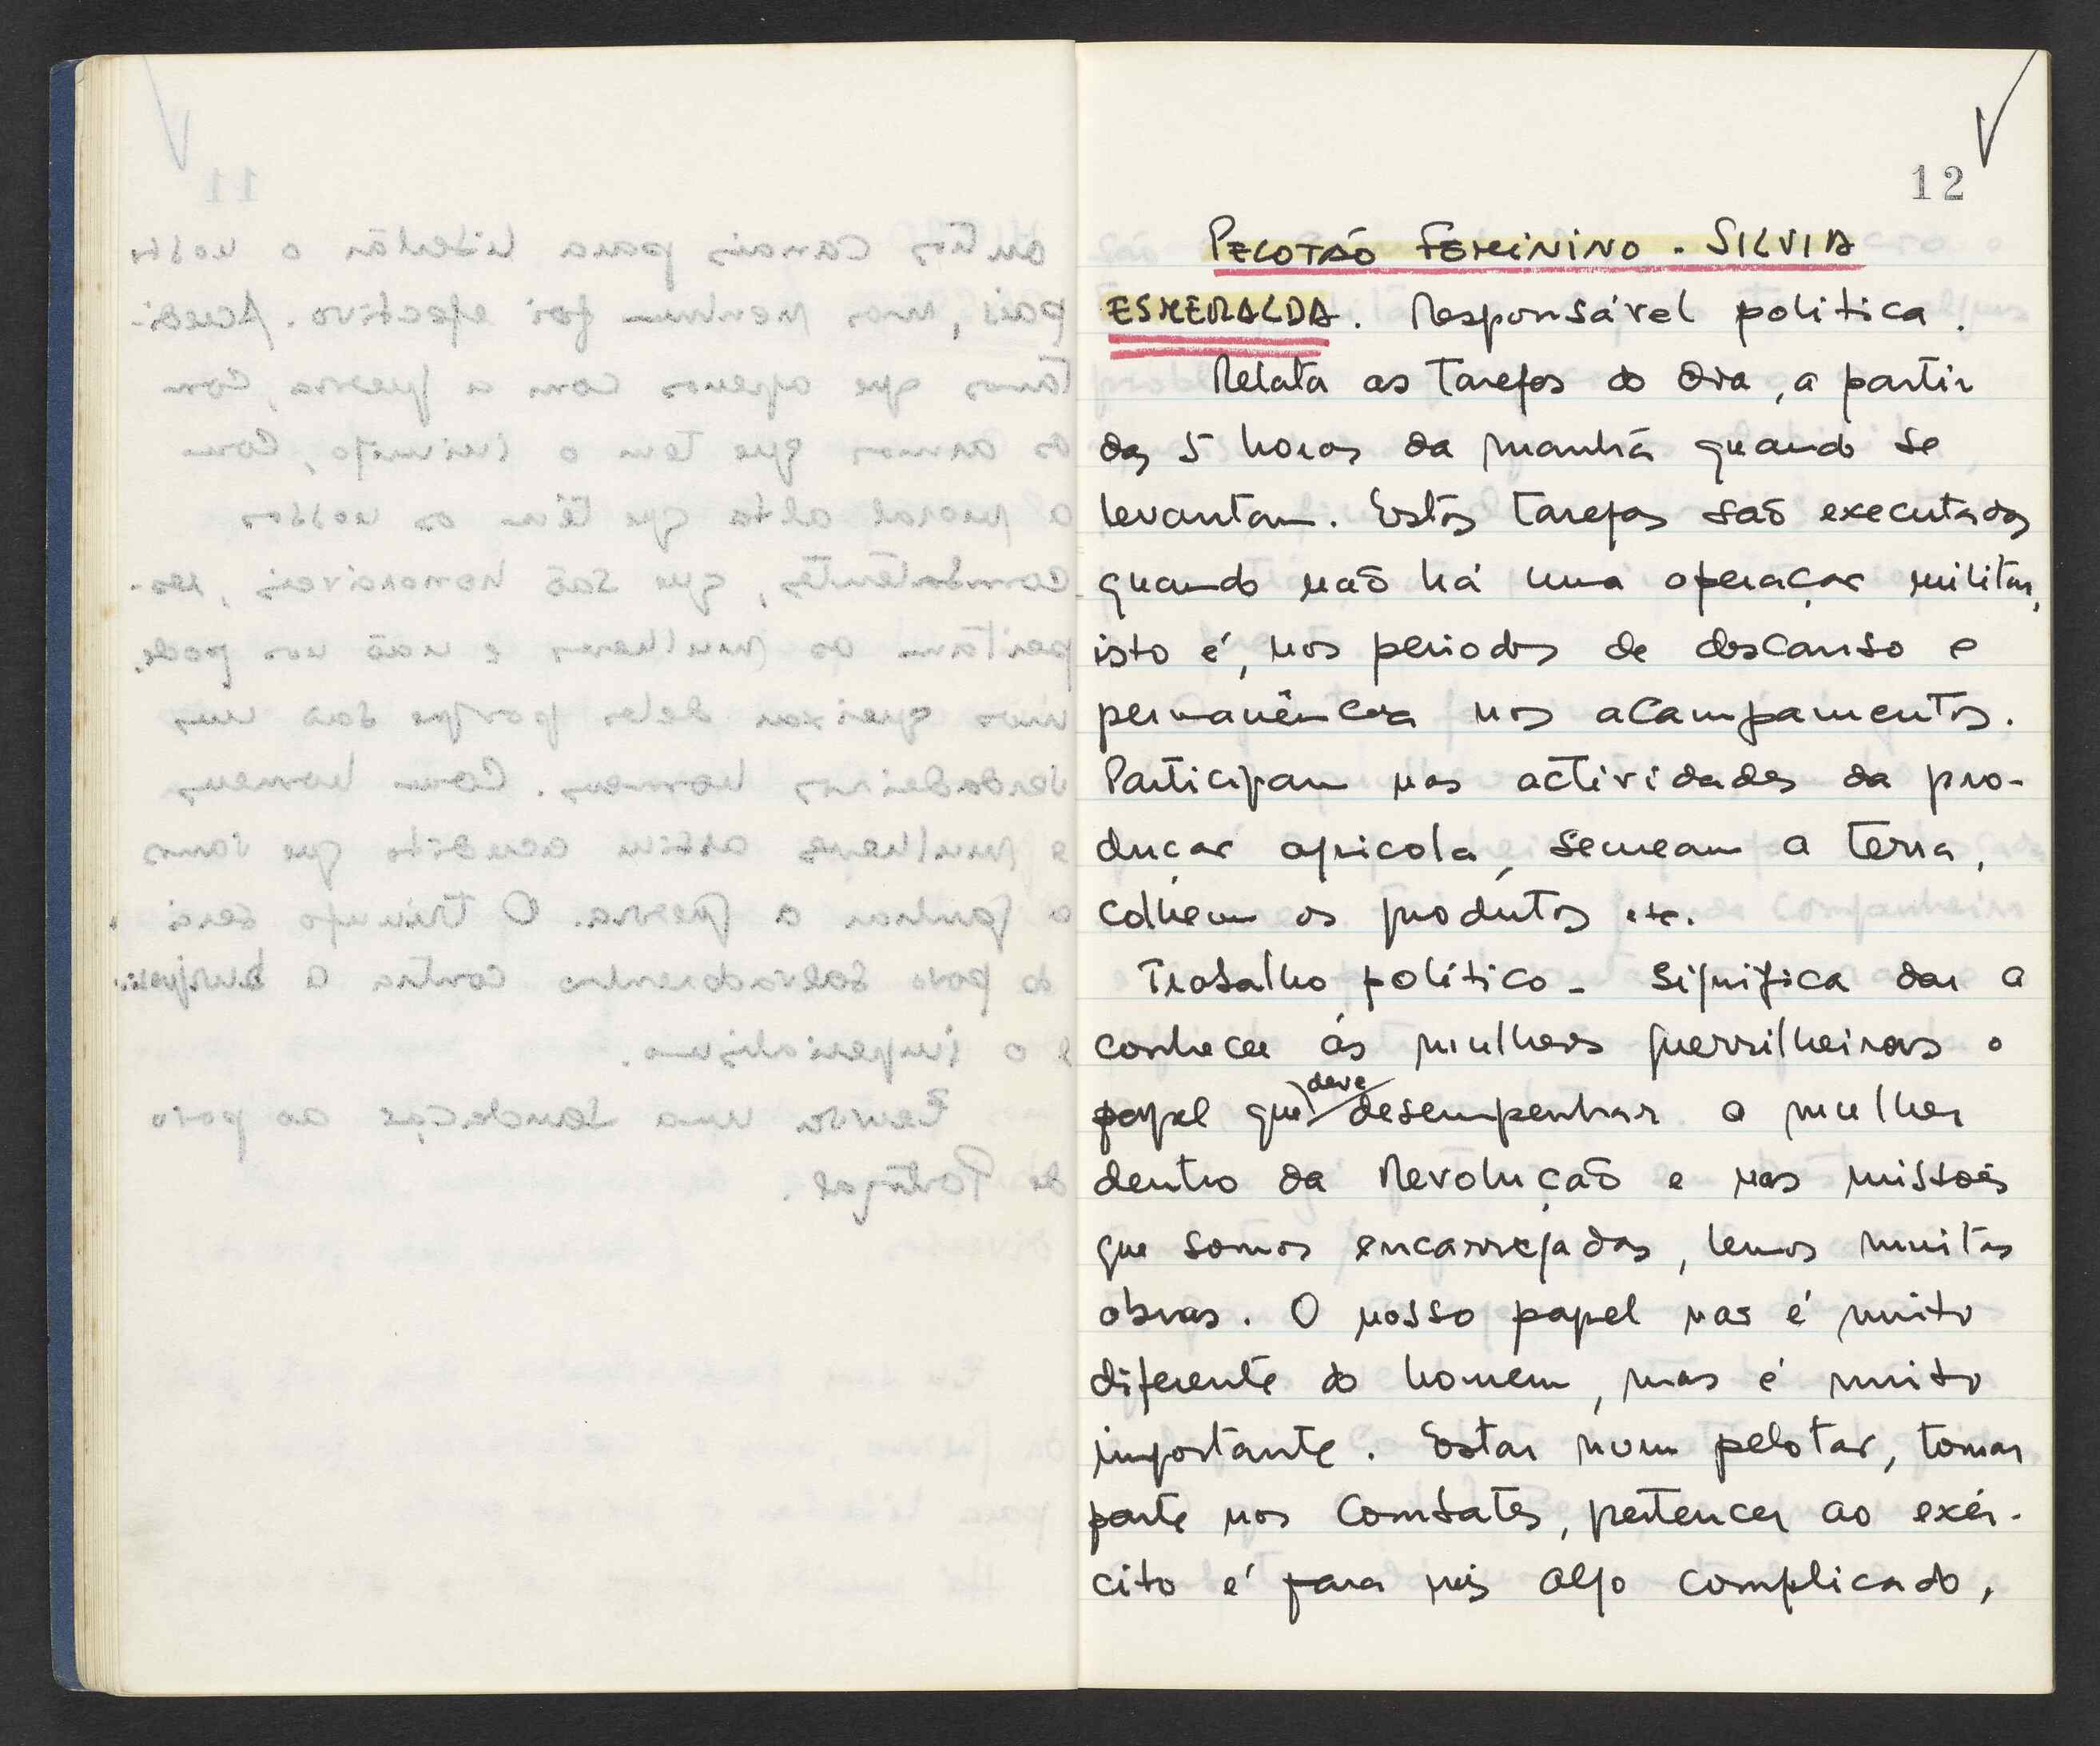 12
PELOTÃO FEMININO - SILVIA
ESMERALDA. Responsável politica.
Relata as tarefas do dia, a partir
das 5 horas da manhã quando se
levantam. Estas tarefas são executadas
quando não há uma operação militar,
isto é, nos periodos de descanso e
permanência nos acampamentos.
Participam nas actividades da pro-
dução agricola, semeam a terra,
colhem os produtos etc.
Trabalho político - significa dar a
conhecer às mulheres guerrilheiras o
papel que deve desempenhar a mulher
dentro da Revolução e nas missões
que somos encarregadas, lemos muitas
obras. O nosso papel não é muito
diferente do homem, mas é muito
importante. Estar num pelotão, tomar
parte nos combates, pertencer ao exér-
cito é para nós algo complicado,